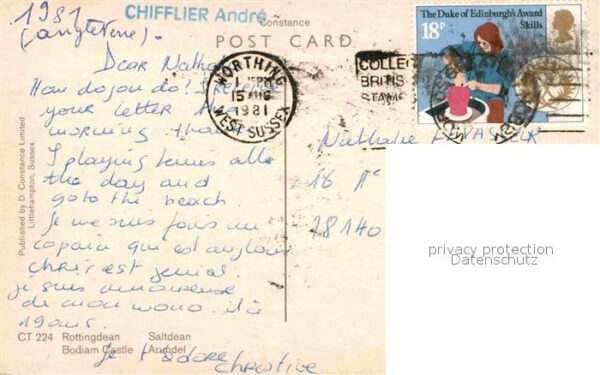 1981
(angleterre).
CHIFFLIER André
Constance
POST CARD
Dear Nathalie
How do you do? I receive
your letter this
morning. thank
I playing tennis alle
the day and
go to the beach.
Je me suis fais un
copain qui est anglais
chris est genial.
je suis amoureuse
de mon mono. il a
19 ans.
Je t'adore
Christine
WORTHING
15 AUG
1981
WEST SUSSEX
COLLECT
BRITISH
STAMPS
The Duke of Edinburgh's Award
18P Skills
Nathalie
16 A
78140
Published by D. Constance Limited
Littlehampton, Sussex.
CT 224 Rottingdean Saltdean
Bodiam Castle Arundel
privacy protection
Datenschutz